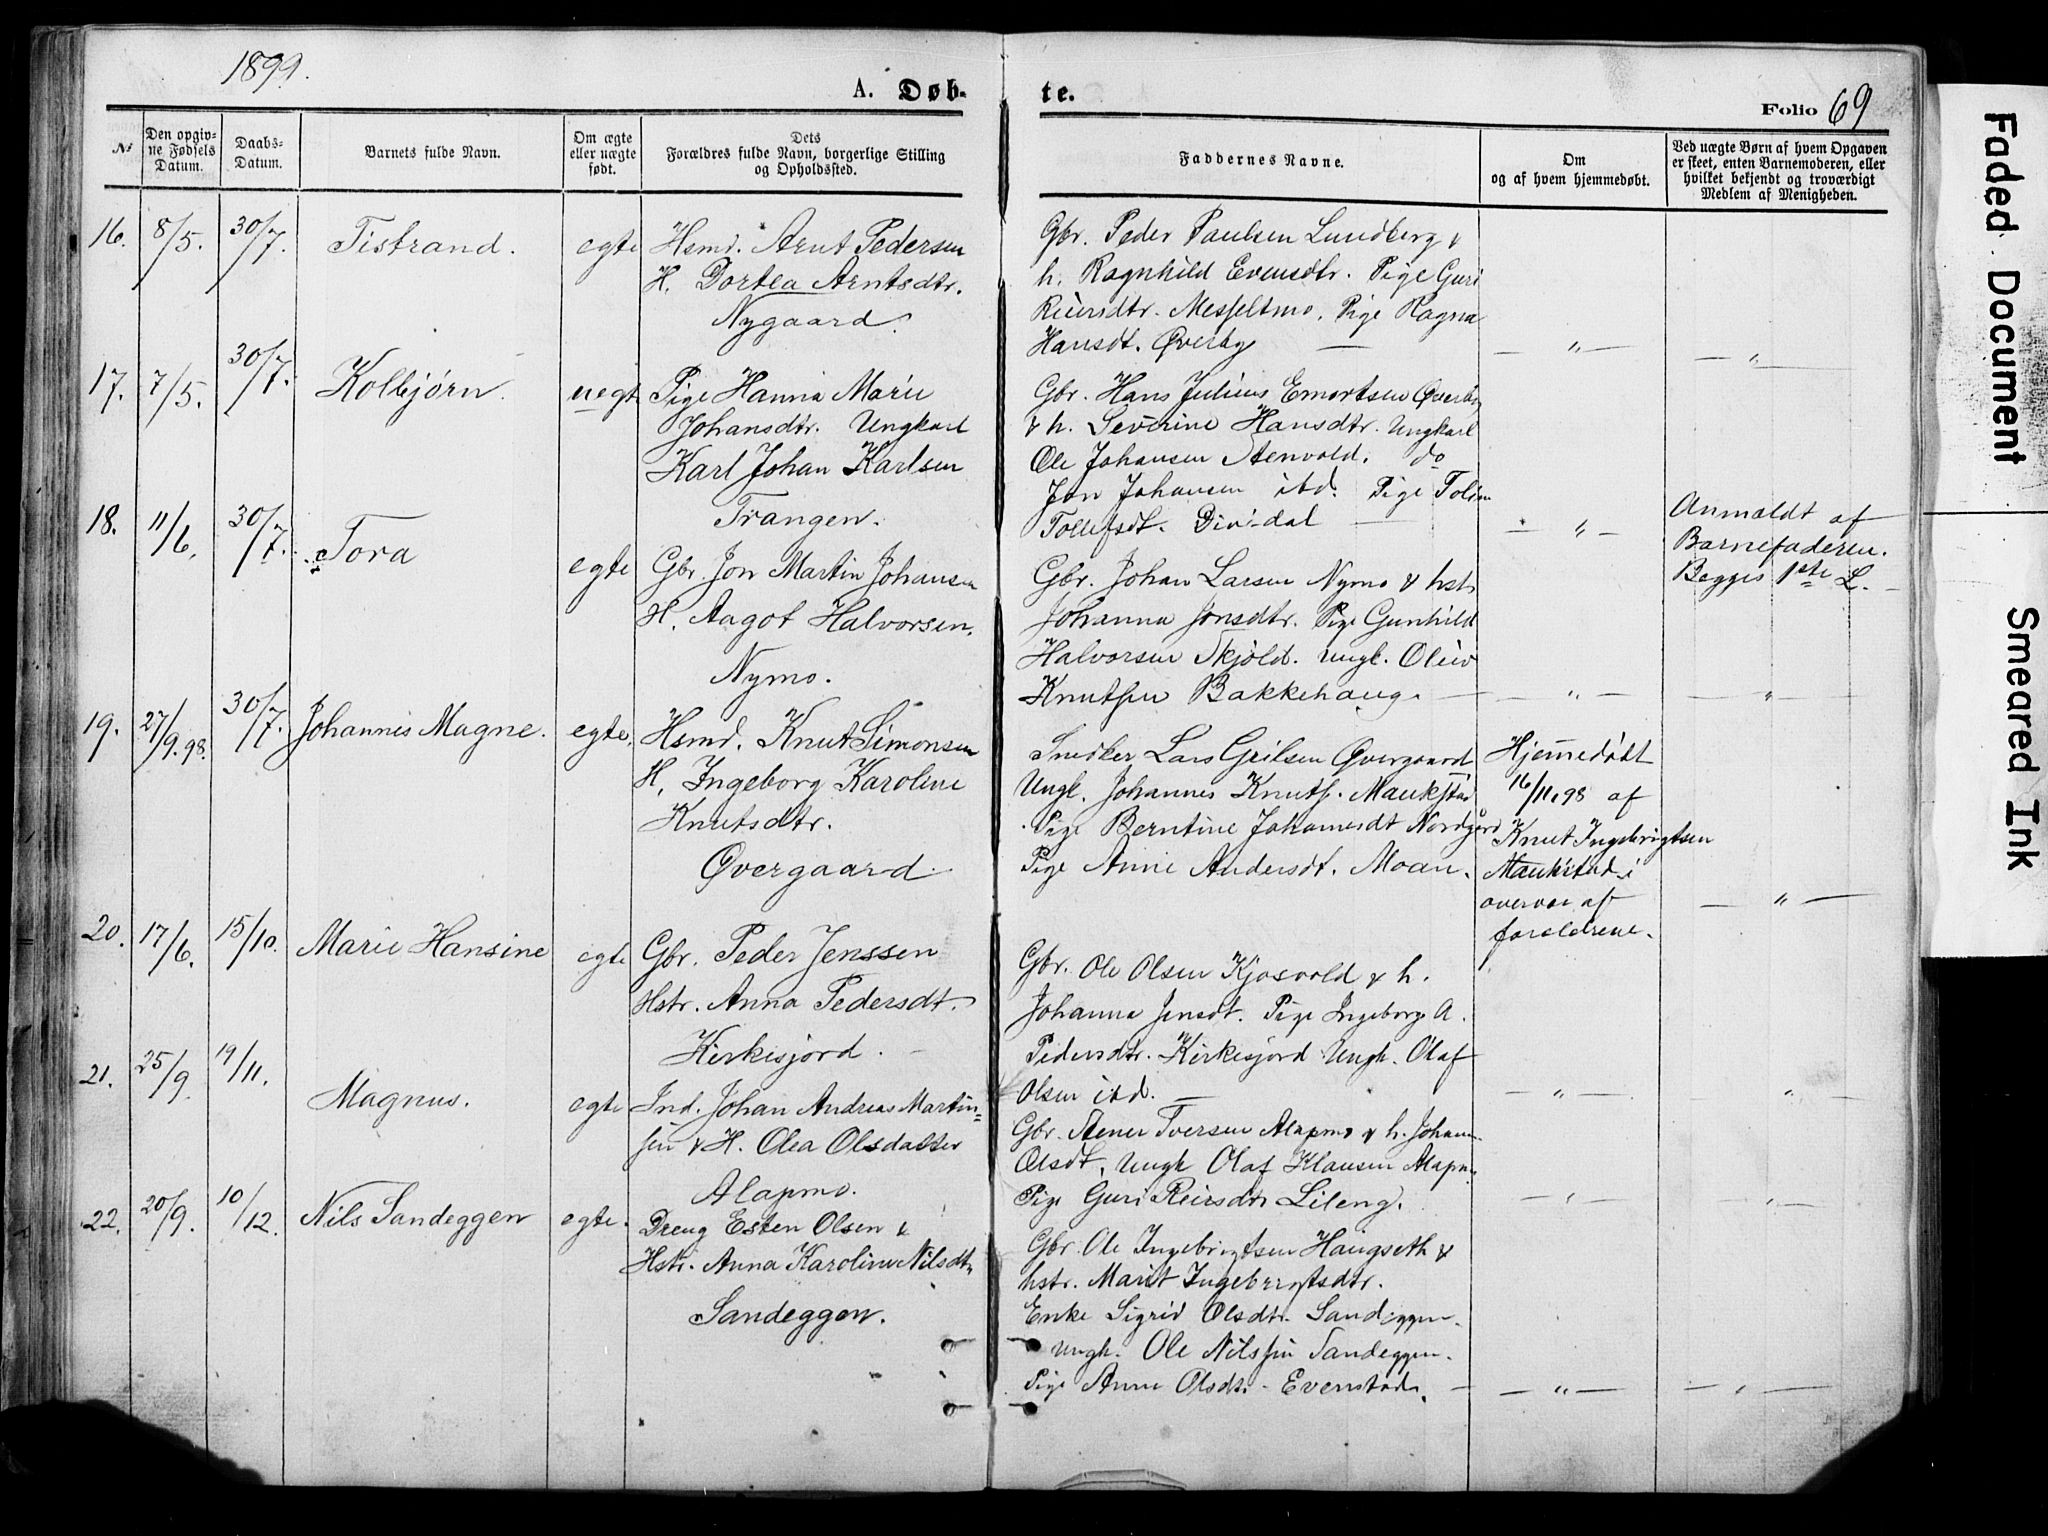 1899.
A. Døb-
te.
Folio 69
No
Den opgiv-
ne Fødsels
Datum.
Daabs-
Datum.
Barnets fulde Navn.
Om ægte
eller uægte
født.
Dets
Forældres fulde Navn, borgerlige Stilling
og Opholdsted.
Faddernes Navne.
Om
og af hvem hjemmedøbt.
Ved uægte Børn af hvem Opgaven
er skeet, enten Barnemoderen, eller
hvilket bekjendt og troværdigt
Medlem af Menigheden.
16. 8/5. 30/7. Tistrand. egte
Hsmd. Arnt Pedersen
H. Dortea Arntsdtr.
Nygaard.
Gbr. Peder Paulsen Lundberg &
h. Ragnhild Evensdtr. Pige Guri
Reiersdtr. Messeltmo. Pige Ragna
Hansdt. Øverby — — " — — "
17. 7/5. 30/7. Kolbjørn. uegt
Pige Hanna Marie
Johansdtr. Ungkarl
Karl Johan Karlsen
Trangen.
Gbr. Hans Julius Emertsen Øverby
& h. Severine Hansdtr. Ungkarl
Ole Johansen Stenvold. do
Jon Johansen ibd. Pige
Tollefsdt. Divi-dal — — " —
Anmeldt af
Barnefaderen.
Begges 1ste L.
18. 11/6. 30/7. Tora egte
Gbr. Jon Martin Johansen
H. Aagot Halvorsen.
Nymo.
Gbr. Johan Larsen Nymo & hst.
Johanna Jonsdtr. Pige Gunhild
Halvorsen Skjold. Ungk. Oleiv
Knutsen Bakkehaug. — — " — — "
19. 27/9.98. 30/7. Johannes Magne. egte.
Hsmd. Knut Simonsen
H. Ingeborg Karoline
Knutsdtr.
Øvergaard.
Snedker Lars Øvergaard
Ungk. Johannes Knuts. Maukstad
Pige Berntine Johannesdt Nordgård
Pige Anne Andersdt. Moan.
Hjemmedøbt
16/11.98 af
Knut Ingebrigtsen
Maukstad i
overvær af
forældrene.
— " —
20. 17/6. 15/10. Marie Hansine egte
Gbr. Peder Jenssen
Hstr. Anna Pedersdt.
Kirkesjord. —
Gbr. Ole Olsen Kjosvold & h.
Johanna Jensdt. Pige Ingeborg A.
Pedersdtr. Kirkesjord Ungk. Olaf
Olsen ibd. — — " — "
21. 25/9. 19/11. Magnus. egte
Ind. Johan Andreas Martin-
sen & H. Olea Olsdatter
Alapmo.
Gbr. Stener Iversen Alapmo & h. Johan-
Olsdt, Ungk Olaf Klausen Alapm.
Pige Guri Reiersdtr Lileng. — " — "
22. 20/9. 10/12. Nils Sandeggen egte.
Dreng Esten Olsen &
Hstr. Anna Karoline Nilsdt.
Sandeggen.
Gbr. Ole Ingebrigtsen Haugseth &
hstr. Marit Ingebrigtsdtr.
Enke Sigrid Olsdtr. Sandeggen.
Ungk. Ole Nilssen Sandeggen.
Pige Anne Olsdt. Evenstad. — — " — — " —
Faded Document
Smeared Ink